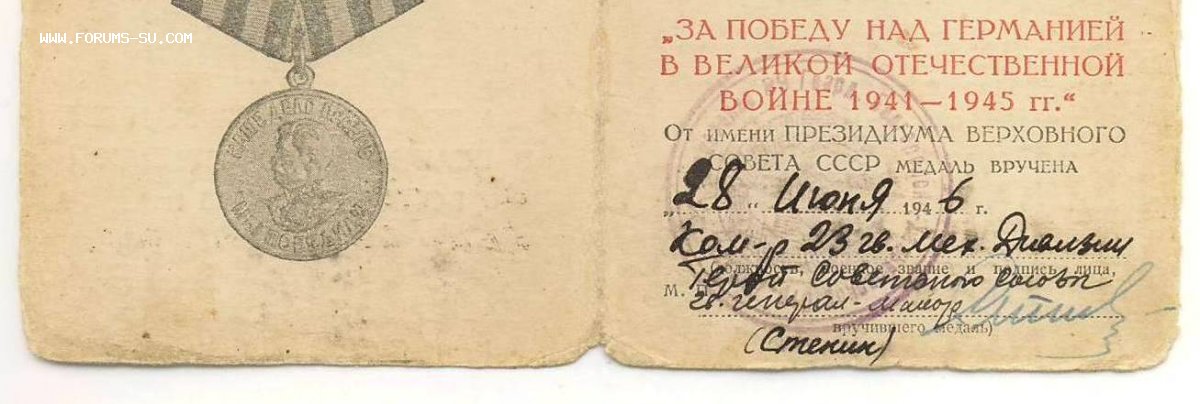 WWW.FORUMS-SU.COM
НАШЕ ДЕЛО ПРАВОЕ
МЫ ПОБЕДИЛИ
„ЗА ПОБЕДУ НАД ГЕРМАНИЕЙ
В ВЕЛИКОЙ ОТЕЧЕСТВЕННОЙ
ВОЙНЕ 1941—1945 гг.“
От имени ПРЕЗИДИУМА ВЕРХОВНОГО
СОВЕТА СССР медаль вручена
„28“ Июня 1946 г.
Ком-р 23 гв. мех. Дивизии
(должность, военное звание и подпись лица,
Герой Советского Союза
М. П.
гв. генерал-майор
вручившего медаль)
(Стенин)